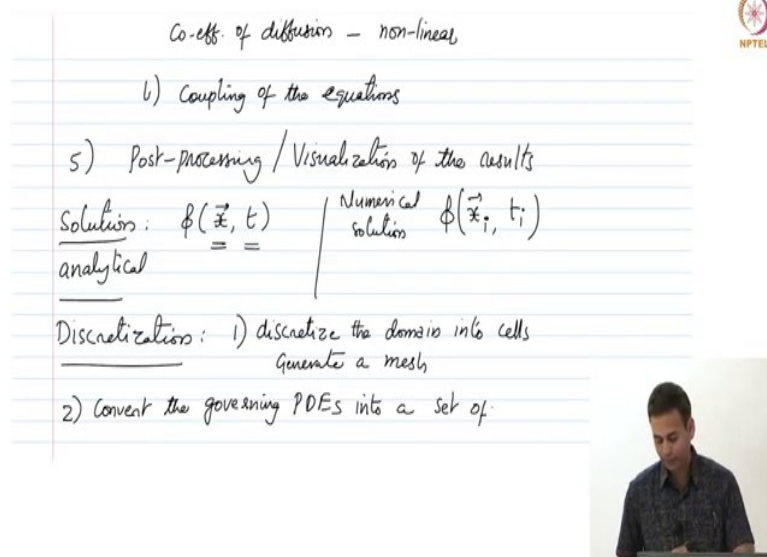 Co-eff. of diffusion - non-linear
NPTEL
b) Coupling of the equations
5) Post-processing / Visualization of the results
Solution: ϕ(x⃗, t) | Numerical solution ϕ(x⃗i, ti)
analytical
Discretization: 1) discretize the domain into cells
Generate a mesh
2) Convert the governing PDEs into a set of